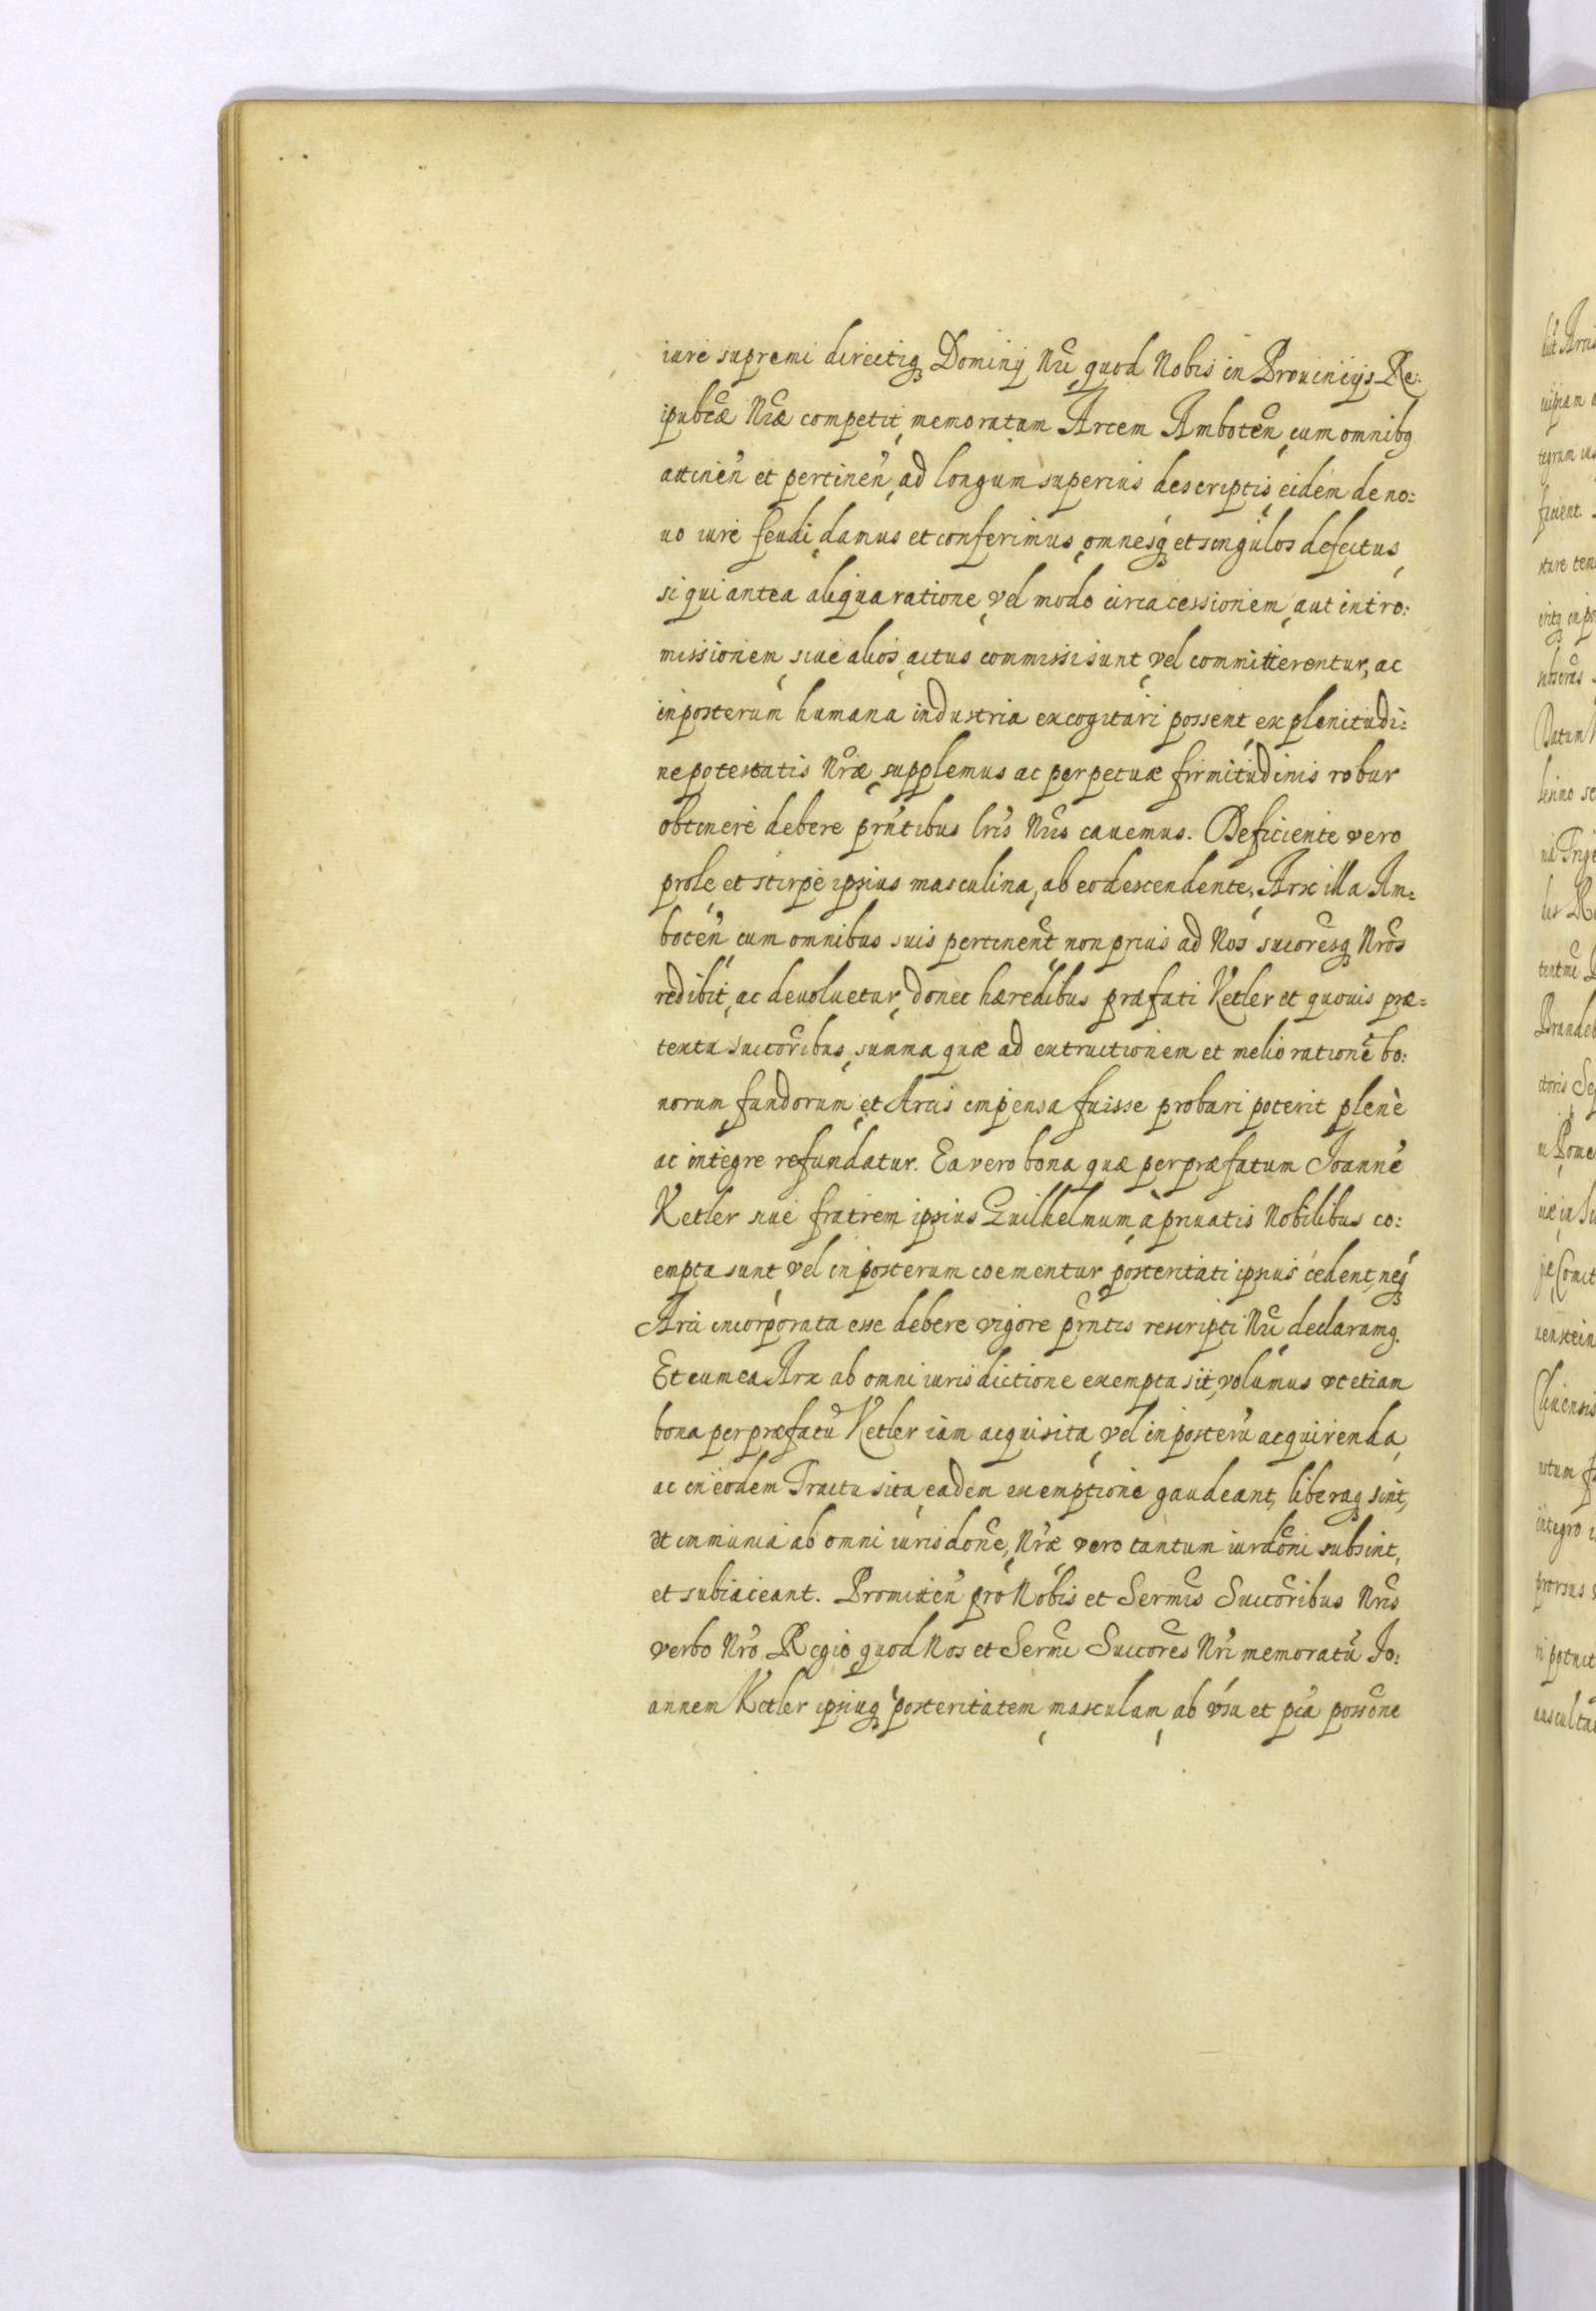 iure supremi directiq₃ Dominij Nri quod Nobis in Prouincijs Re:
ipubcæ Nræ competit, memoratam Arcem Amboten, cum omnibq
attinen et pertinen, ad longum superius descriptis, eidem de no:
uo iure feudi, damus et conferimus, omnesq₃ et singulos defectus,
si qui antea aliqua ratione, vel modo circa cessionem, aut intro:
missionem, siue alios, actus commissi sunt, vel committerentur, ac
inposterum humana industria excogitari possent, ex plenitudi:
ne potestatis Nræ, supplemus ac perpetuæ firmitudinis robur
obtinere debere prntibus lris Nris cauemus. Deficiente vero
prole, et stirpe ipsius masculina, ab eo descendente, Arx illa Am:
boten cum omnibus suis pertinent, non prius ad Nos sucoresq₃ Nros
redibit, ac deuoluetur, donec hæredibus præfati Ketler et quouis præ:
textu succoribus, summa quæ ad extructionem et melioratione bo:
norum, fundorum, et Arcis empensa fuisse probari poterit plenè
ac integre refundatur. Ea vero bona quæ per præfatum Joanne
Ketler siue fratrem ipsius Guilhelmum, à priuatis Nobilibus co:
empta sunt, vel in posterum coementur, posteritati ipsius cedent, neq₃
Arci incorporata esse debere vigore prntis rescripti Nri declaramq.
Et cum ea Arx ab omni iurisdictione exempta sit, volumus vt etiam
bona per præfatu Ketler iam acquisita, vel in posteru acquirenda,
ac in eodem Tractu sita, eadem exemptione gaudeant, liberaq₃ sint,
et immunia ab omni iurisdone, Nræ vero tantum iurdoni subsint,
et subiaceant. Promitten pro Nobis et Sermis Succoribus Nris
verbo Nro Regio, quod Nos et Sermi Succores Nri memoratu Jo:
annem Ketler ipsiusq₃ posteritatem, masculam, ab vsu et pca possone